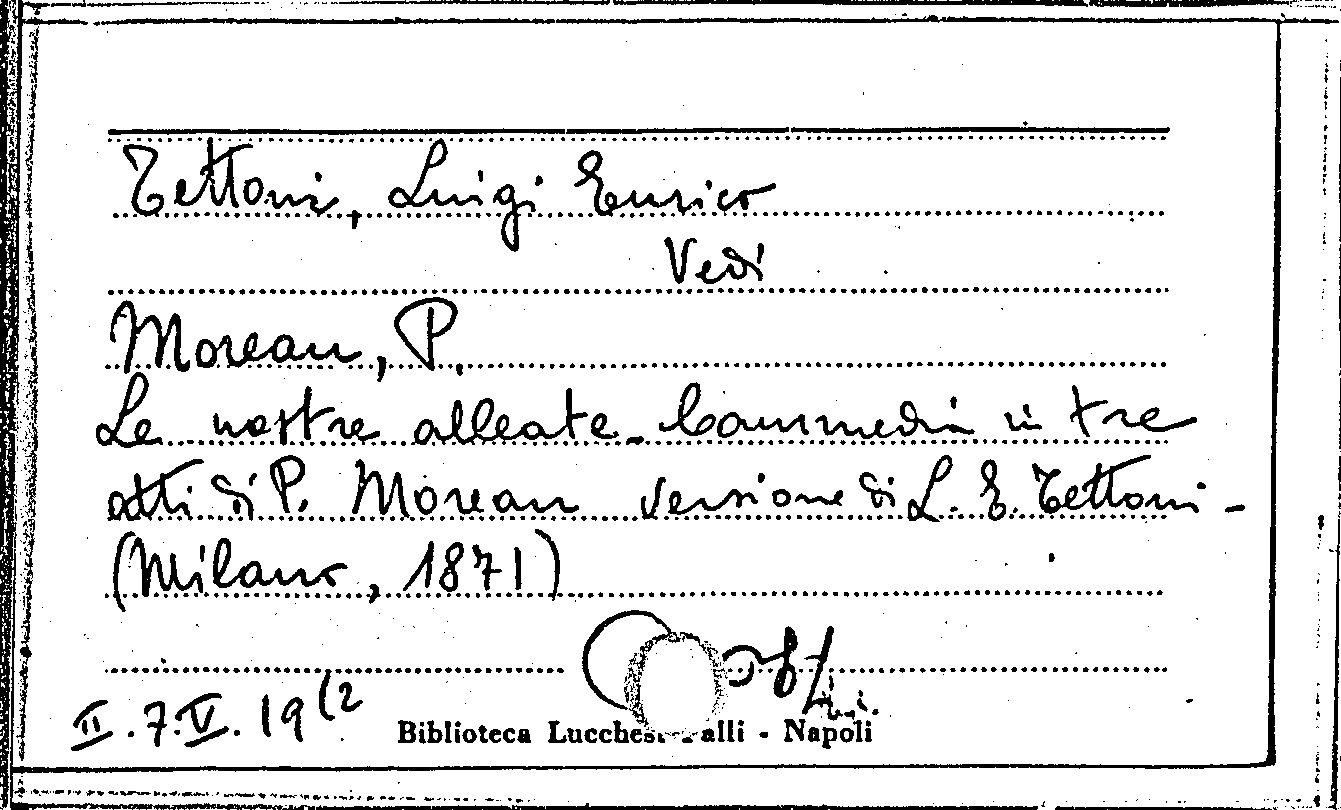 Tettoni, Luigi Enrico
Vedi
Moreau, P.
Le nostre alleate. Commedia in tre
atti di P. Moreau versione di L. E. Tettoni -
(Milano, 1871)
II. 7. V. 19 (2
Biblioteca Lucchesi Palli - Napoli